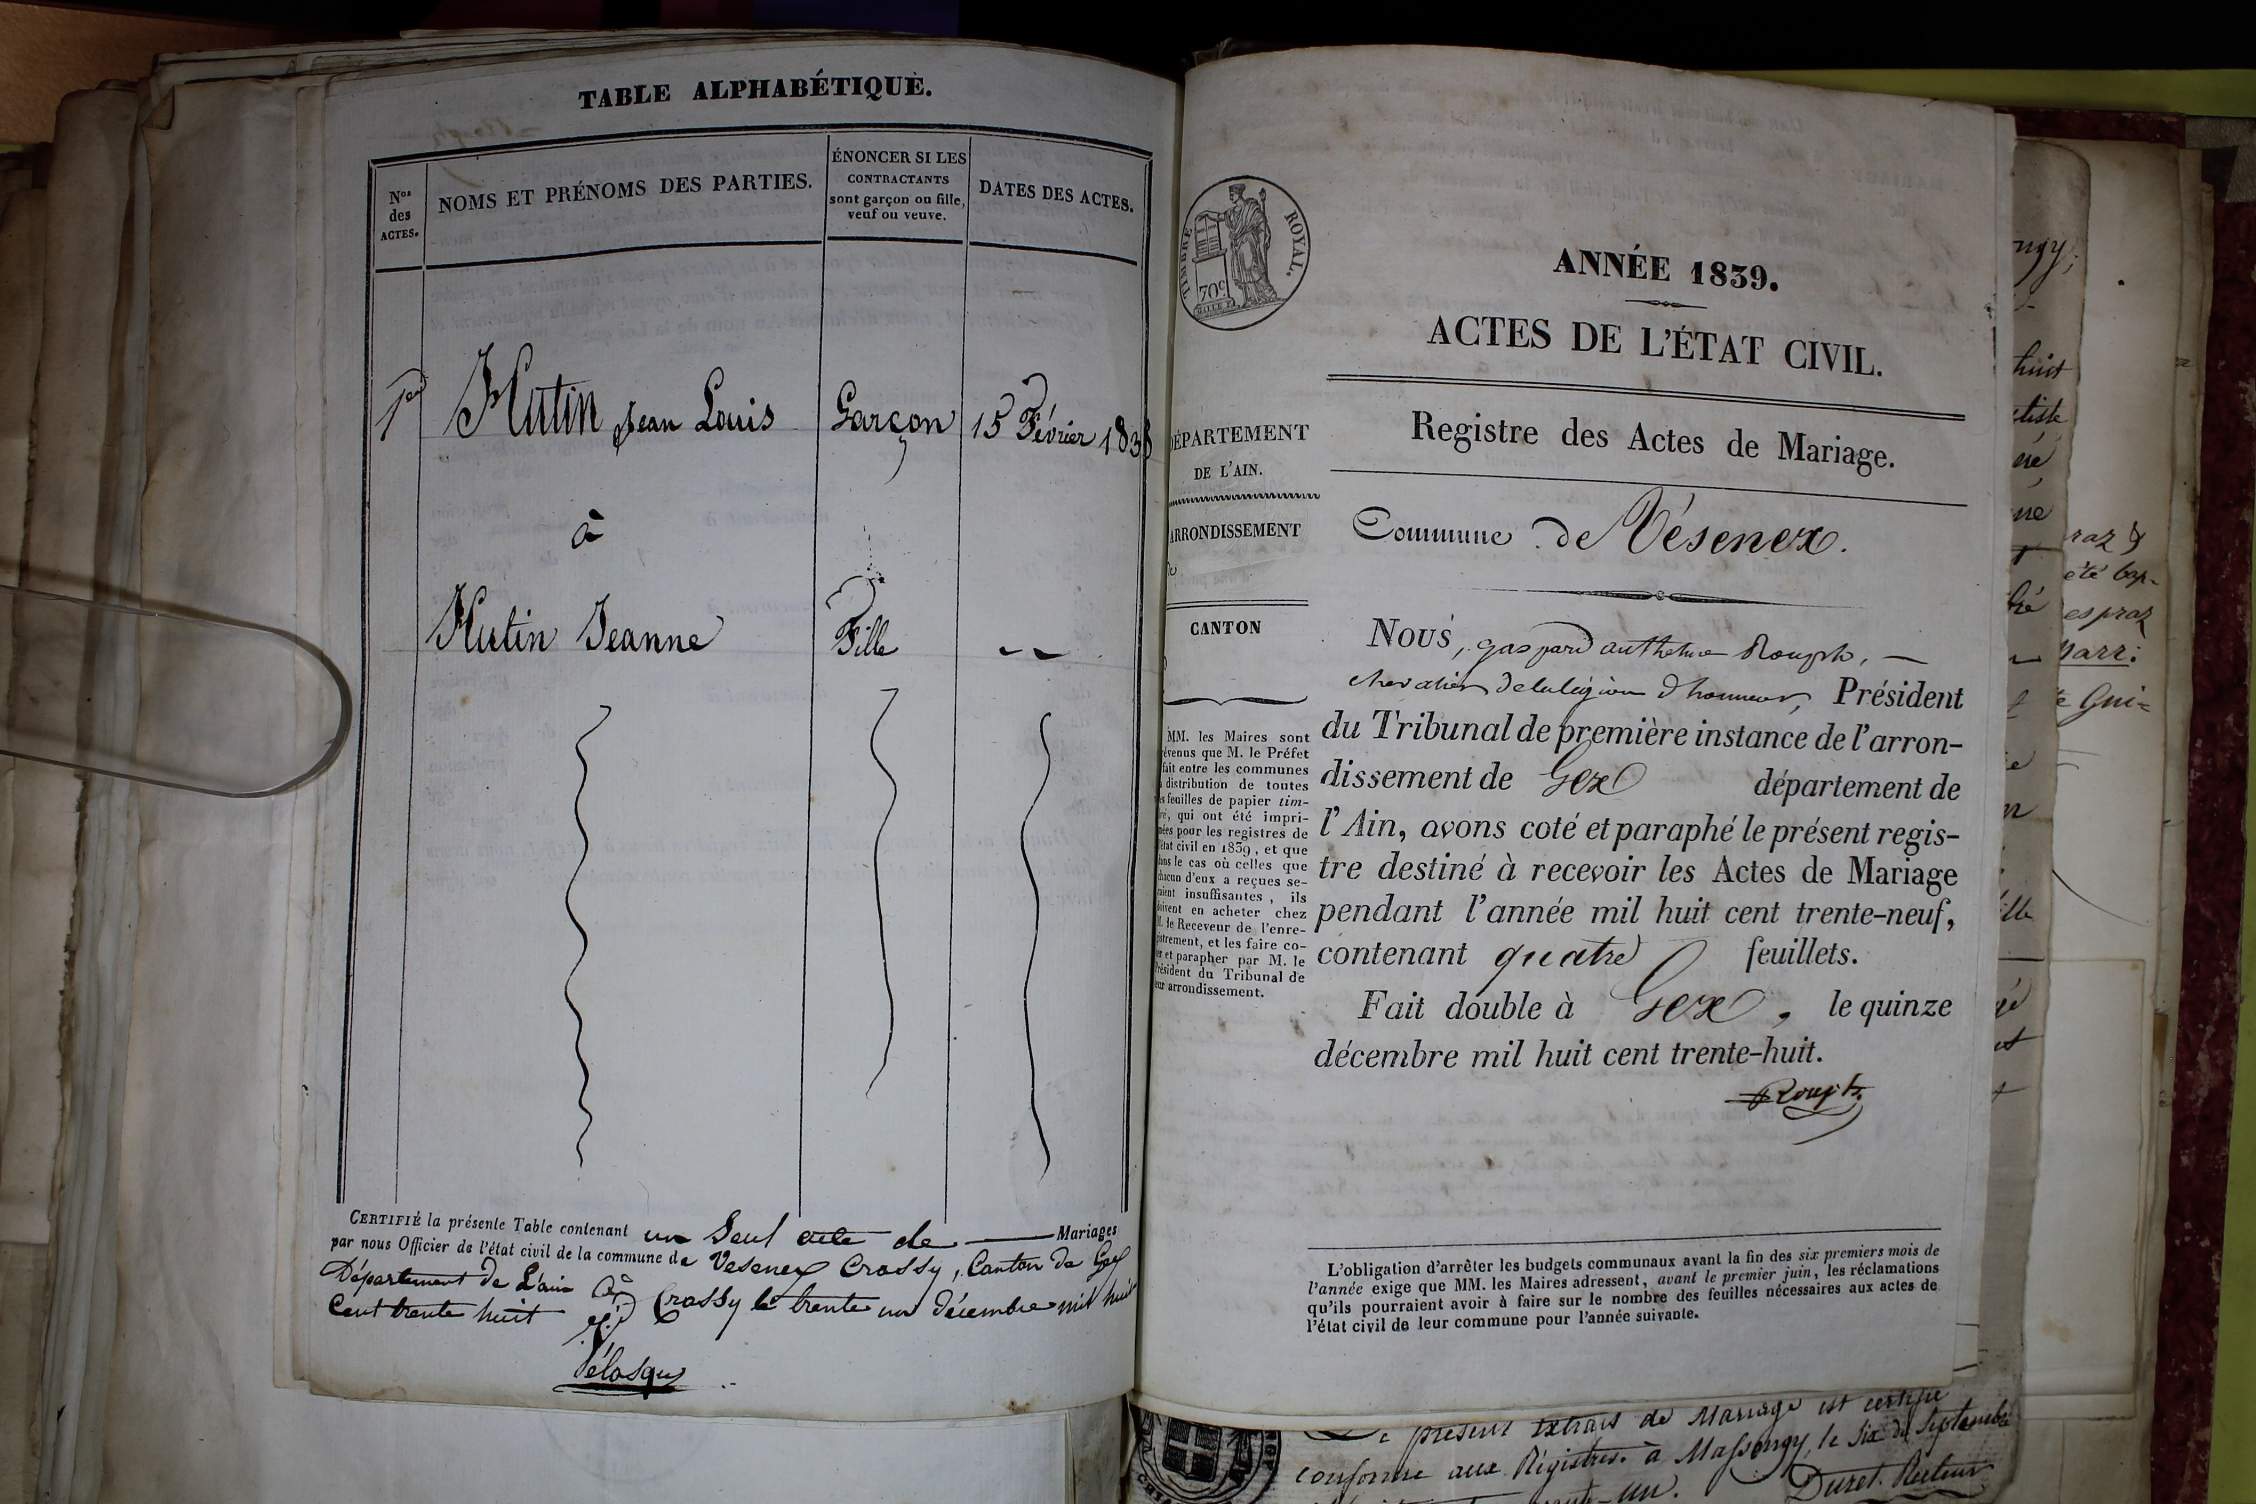 TABLE ALPHABÉTIQUE.
Nos des ACTES.
NOMS ET PRÉNOMS DES PARTIES.
ÉNONCER SI LES
CONTRACTANTS
sont garçon ou fille,
veuf ou veuve.
DATES DES ACTES.
1er Hutin Jean Louis Garçon 15 Février 1838
à
Hutin Jeanne Fille
CERTIFIÉ la présente Table contenant un Seul acte de Mariages
par nous Officier de l'état civil de la commune de Vesenex Crassy, Canton de Gex
Département de L'ain à Crassy le trente un décembre mil huit
Cent trente huit
TIMBRE ROYAL.
70c
ANNÉE 1839.
ACTES DE L'ÉTAT CIVIL.
Registre des Actes de Mariage.
Commune de Vésenex.
DÉPARTEMENT
DE L'AIN.
ARRONDISSEMENT
CANTON
MM. les Maires sont
prévenus que M. le Préfet
fait entre les communes
distribution de toutes
feuilles de papier tim-
qui ont été impri-
mées pour les registres de
l'état civil en 1839, et que
dans le cas où celles que
chacun d'eux a reçues se-
raient insuffisantes, ils
doivent en acheter chez
M. le Receveur de l'enre-
gistrement, et les faire co-
ter et parapher par M. le
Président du Tribunal de
leur arrondissement.
Nous, gaspard anthelme Rouph,
chevalier de la légion d'honneur, Président
du Tribunal de première instance de l'arron-
dissement de Gex département de
l'Ain, avons coté et paraphé le présent regis-
tre destiné à recevoir les Actes de Mariage
pendant l'année mil huit cent trente-neuf,
contenant quatre feuillets.
Fait double à Gex, le quinze
décembre mil huit cent trente-huit.
L'obligation d'arrêter les budgets communaux avant la fin des six premiers mois de
l'année exige que MM. les Maires adressent, avant le premier juin, les réclamations
qu'ils pourraient avoir à faire sur le nombre des feuilles nécessaires aux actes de
l'état civil de leur commune pour l'année suivante.
présent extrait de Mariage est certifié
conforme aux Régistres. à Massongy, le Six du Septembre
Duret. Recteur